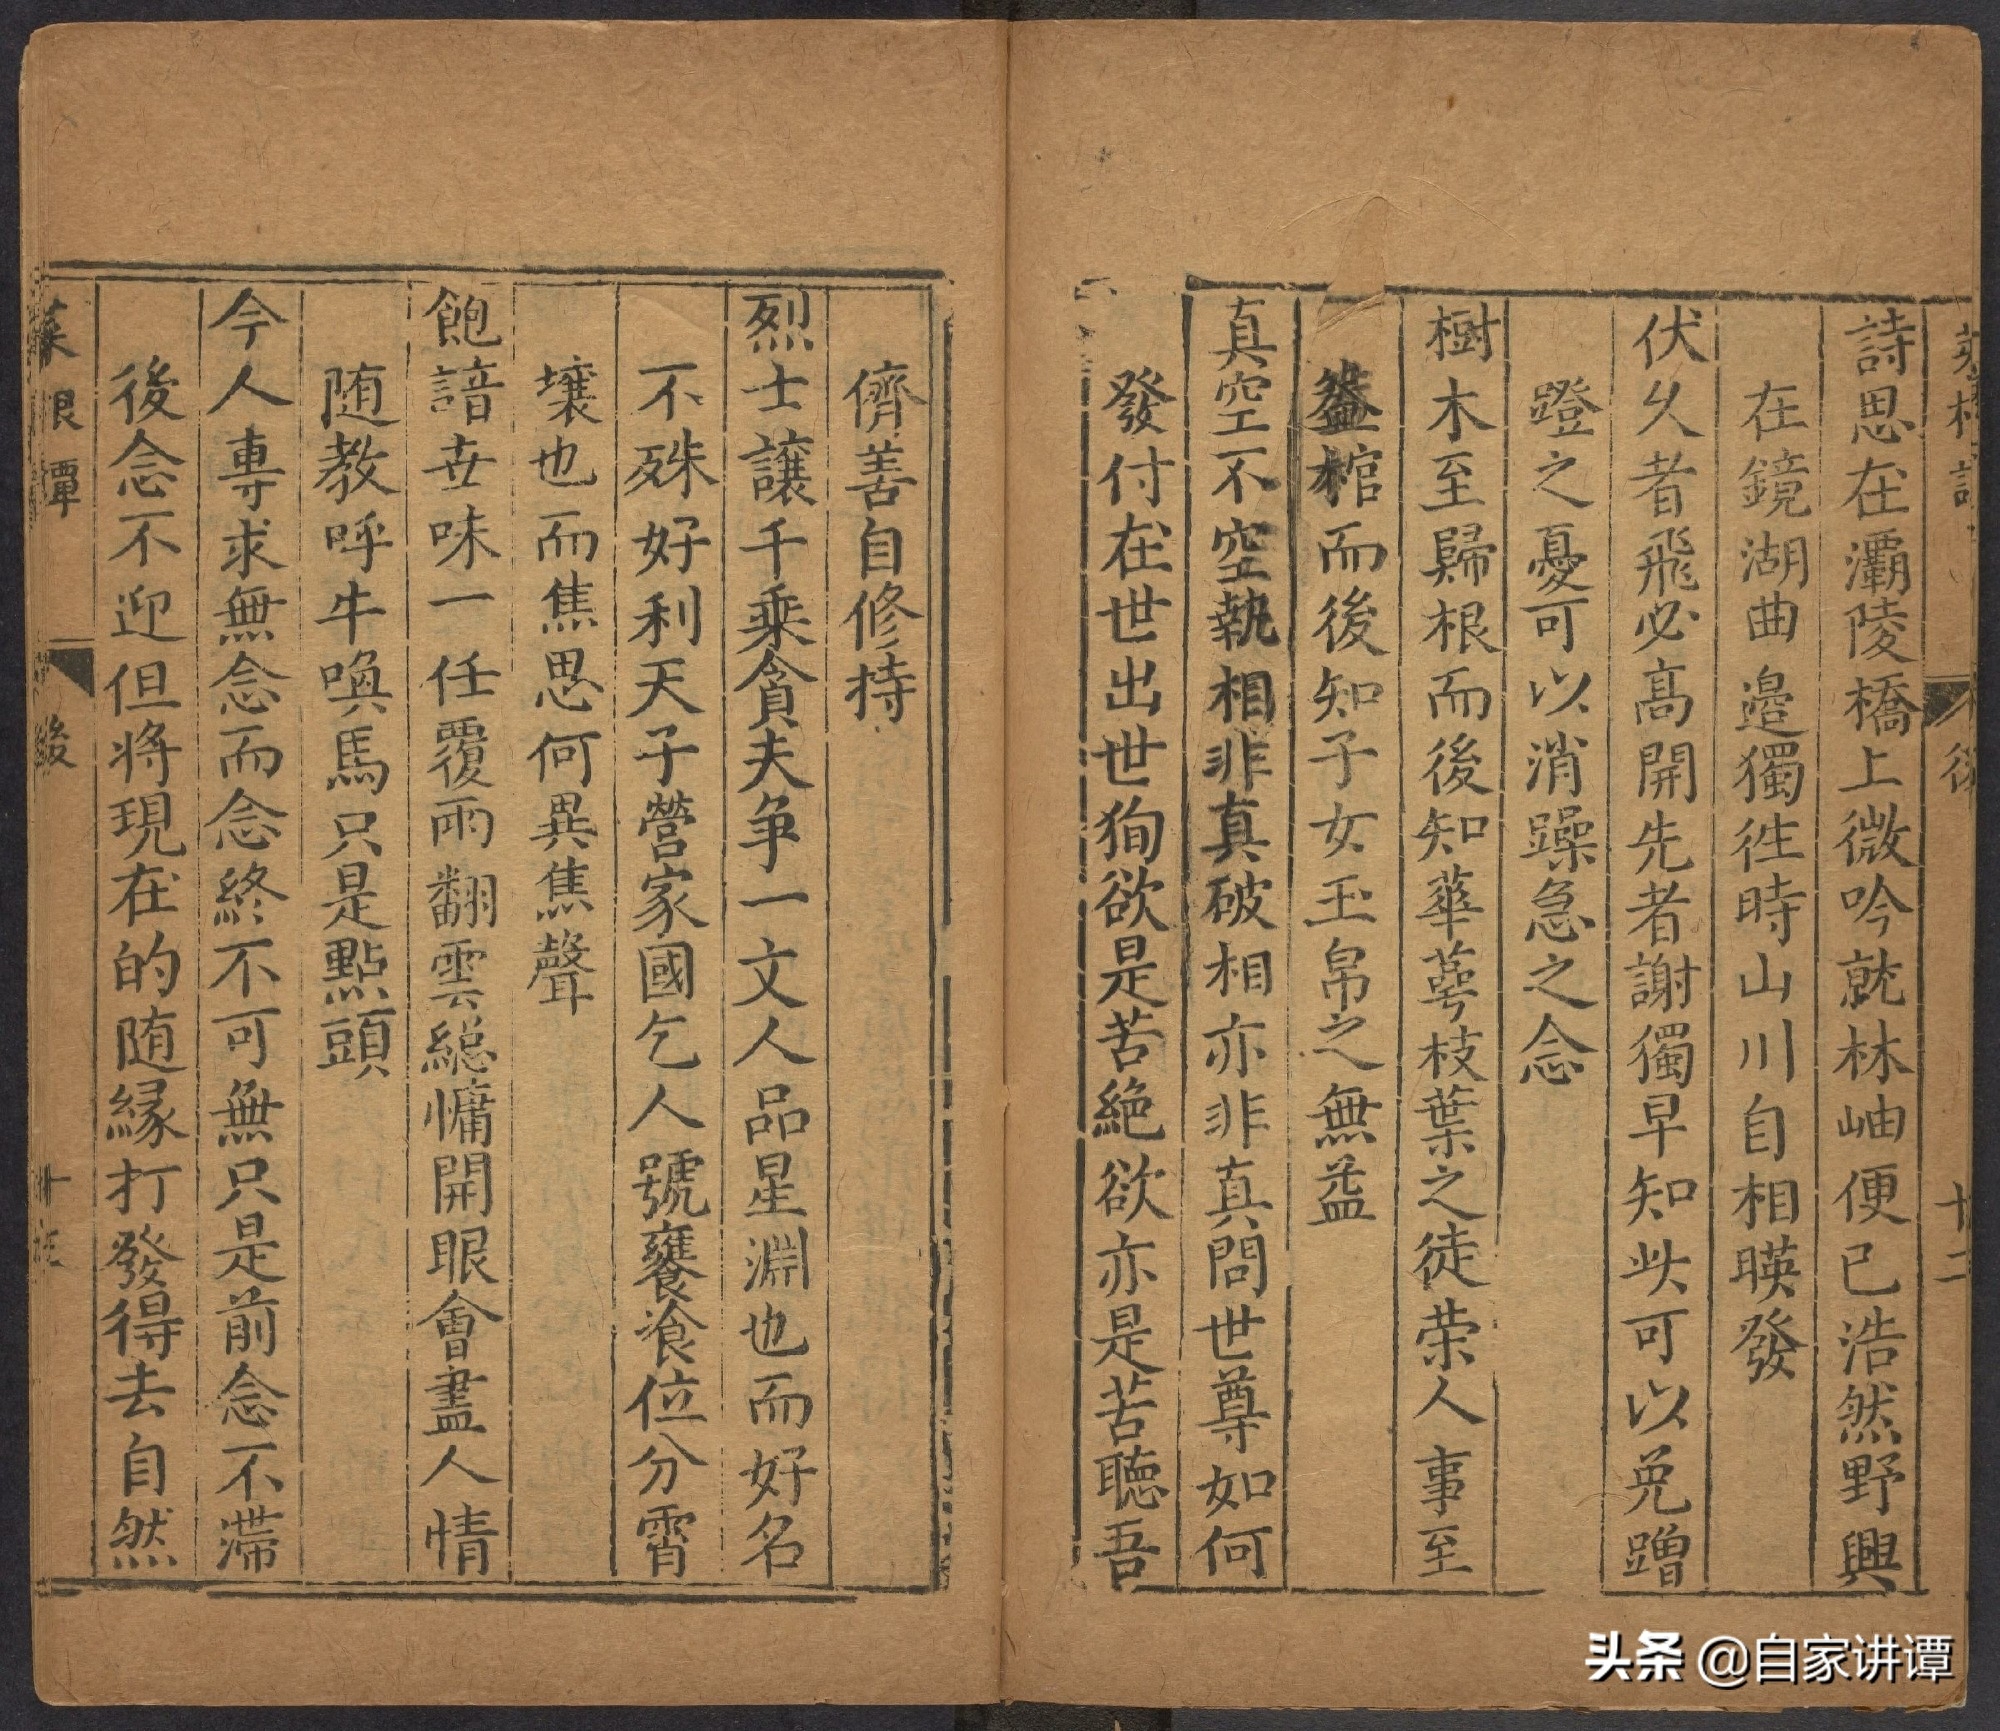 詩思在灞陵橋上微吟就林岫便已浩然野興
在鏡湖曲邊獨徃時山川自相暎發
伏乆者飛必髙開先者謝獨早知此可以免蹭
蹬之憂可以消躁急之念
樹木至歸根而後知華萼枝葉之徒荣人事至
盖棺而後知子女玉帛之無益
真空不空執相非真破相亦非真問世尊如何
發付在世出世狥欲是苦絶欲亦是苦聴吾
儕善自修持
烈士讓千乗貪夫争一文人品星淵也而好名
不殊好利天子營家國乞人號饔飡位分霄
壤也而焦思何異焦聲
飽諳世味一任覆雨翻雲緫慵開眼會盡人情
随教呼牛喚馬只是點頭
今人專求無念而念終不可無只是前念不滯
後念不迎但将現在的随縁打發得去自然
菜根譚
後
十二
头条 @自家讲谭